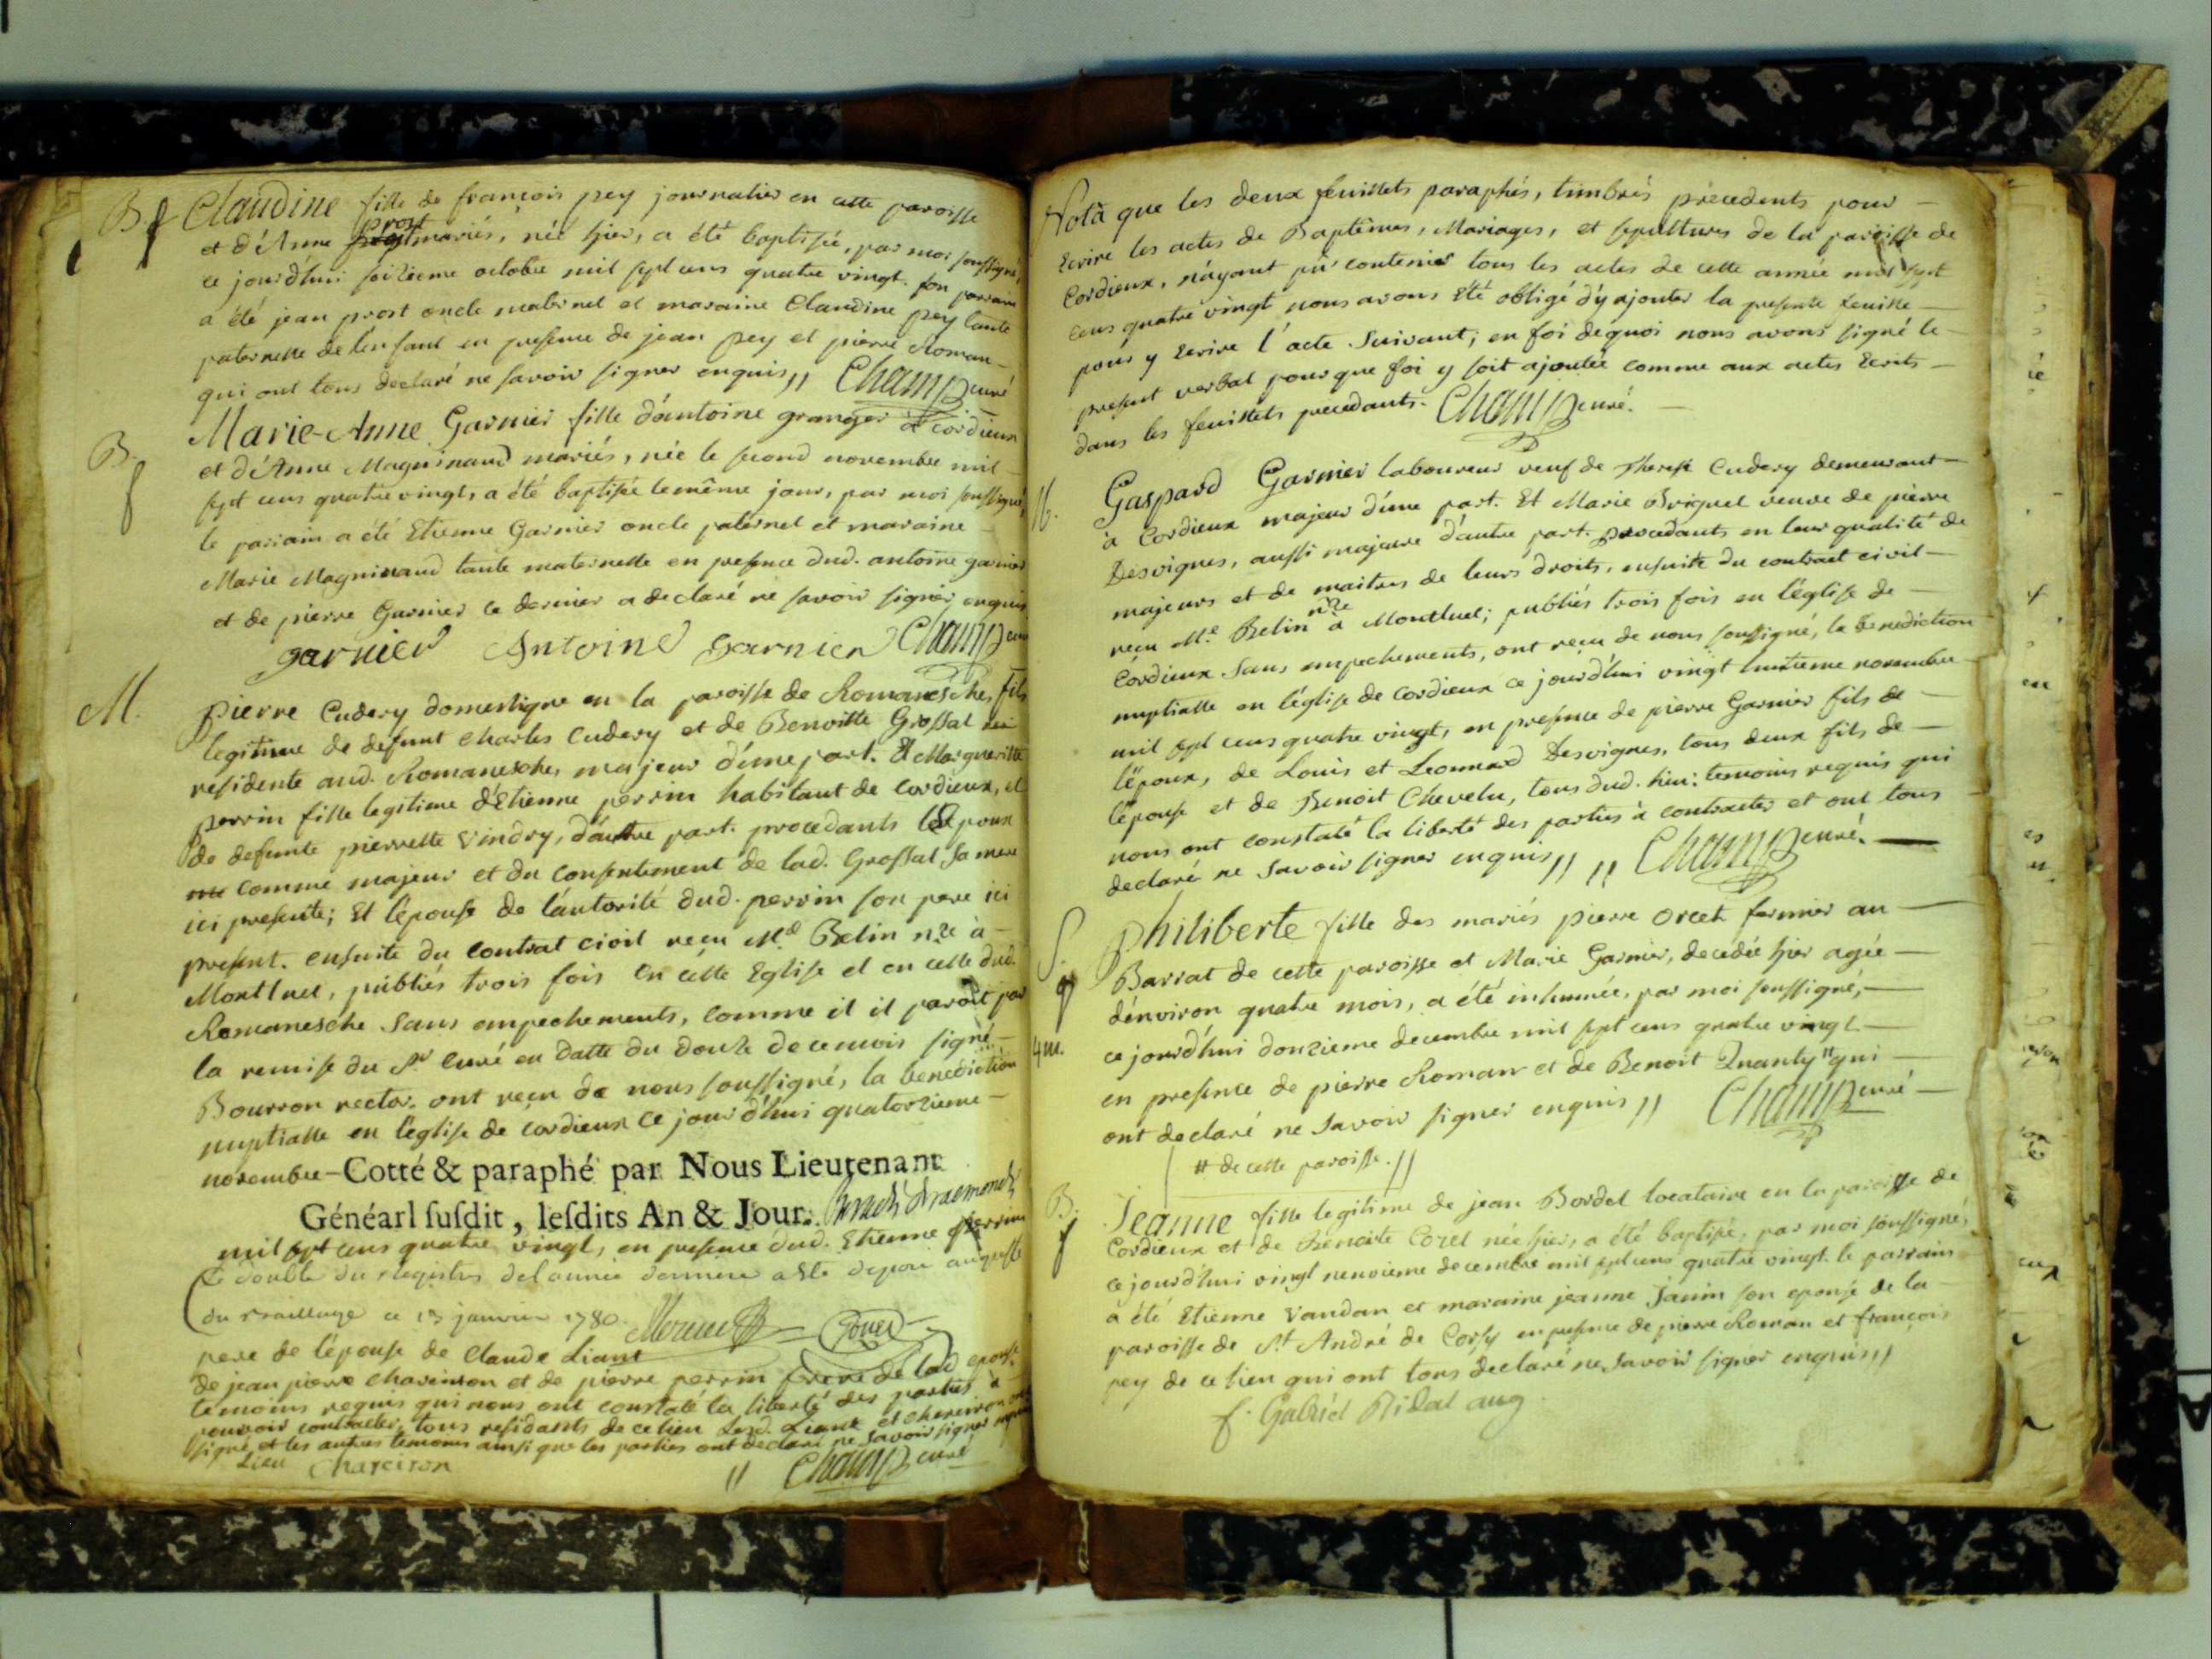 B f Claudine fille de françois pey journalier en cette paroisse
et d'Anne prost mariés, née hier, a été baptisée, par moi soussigné,
ce jourd'hui seizieme octobre mil sept cens quatre vingt. son parrain
a été jean prost oncle maternel et maraine Claudine pey tante
paternelle de l'enfant en presence de jean pey et pierre Roman
qui ont tous declaré ne savoir signer enquis // Champ curé
B. f Marie-Anne Garnier fille d'antoine granger à cordieux
et d'Anne Magninaud mariés, née le second novembre mil
sept cens quatre vingt, a été baptisée le même jour, par moi soussigné,
le pariain a été Etienne Garnier oncle paternel et maraine
Marie Magninaud tante maternelle en presence dud. antoine garnier
et de pierre Garnier ce dernier a declaré ne savoir signer, enquis
garnier Antoine garnier Champ curé
M. pierre Cudery domestique en la paroisse de Romanesche, fils
legitime de defunt Charles Cudery et de Benoitte Grossat
residente aud. Romanesche, majeur d'une part. Et Margueritte
perrin fille legitime d'Etienne perrin habitant de cordieux, et
de defunte pierrette Vindry, d'autre part. procedants l'Epoux
comme majeur et du consentement de lad. Grossat sa mere
ici presente; Et l'épouse de l'autorité dud. perrin son pere ici
present. ensuite du contrat civil reçu Me Belin nre à
Montluel, publiés trois fois en cette Eglise et en celle dud.
Romanesche sans empechements, comme il il paroit par
la remise du Sr curé en datte du douze de ce mois signé
Bourron rector. ont reçu de nous soussigné, la benediction
nuptialle en l'église de cordieux ce jour d'hui quatorzieme
novembre – Cotté & paraphé par Nous Lieutenant
Généarl susdit, lesdits An & Jour.
mil sept cens quatre vingt, en presence dud. Etienne perrin
Le double du registre de l'année derniere a été deposé au greffe
du Bailliage ce 13 janvier 1780.
pere de l'épouse de Claude Liant
de jean pierre Chareiron et de pierre perrin frere de lad. epouse
temoins requis qui nous ont constaté la liberté des parties à
pouvoir contracter, tous residants de ce lieu Lesd. Liant et chareiron ont
signé et les autres temoins ainsi que les parties ont declaré ne savoir signer enquis
Lien Chareiron // Champ curé
Notà que les deux feuillets paraphés, timbrés précedents pour
Ecrire les actes de Baptêmes, Mariages, et sepultures de la paroisse de
Cordieux, n'ayant pû contenir tous les actes de cette année mil sept
cens quatre vingt nous avons été obligé d'y ajouter la presente feuille
pour y Ecrire l'acte suivant; en foi dequoi nous avons signé le
present verbal pour que foi y soit ajoutée comme aux actes Ecrits
dans les feuillets precedants. Champ curé.
M. Gaspard Garnier laboureur veuf de Therese Cudery demeurant
à Cordieux majeur d'une part. Et Marie Briguet veuve de pierre
Desvignes, aussi majeure d'autre part. procedants en leur qualité de
majeurs et de maitres de leurs droits, ensuite du contract civil
reçu Me Belin nre à Montluel; publiés trois fois en l'église de
Cordieux sans empechements, ont reçu de nous soussigné, la benediction
nuptialle en l'église de cordieux ce jourd'hui vingt huitieme novembre
mil sept cens quatre vingt, en presence de pierre Garnier fils de
l'époux, de Louis et Leonnard Desvignes, tous deux fils de
l'épouse et de Benoit Chevelu, tous dud. lieu: temoins requis qui
nous ont constaté la liberté des parties à contracter et ont tous
declaré ne savoir signer enquis // // Champ curé.
S. 4 m. philiberte fille des mariés pierre Orcet fermier au
Barrat de cette paroisse et Marie Garnier, decédée hier agée
d'environ quatre mois, a été inhumée, par moi soussigné,
ce jourd'hui douzieme decembre mil sept cens quatre vingt
en presence de pierre Roman et de Benoit Quanty # qui
ont declaré ne savoir signer enquis // Champ curé
# de cette paroisse. //
B. f Jeanne fille legitime de jean Bordel locataire en la paroisse de
Cordieux et de Benoite Corel née hier, a été baptisée, par moi soussigné,
ce jourd'hui vingt neuvieme decembre mil sept cens quatre vingt. le parrain
a été Etienne Vandan et maraine jeanne Janin son epouse de la
paroisse de St André de Corsy en presence de pierre Roman et françois
pey de ce lieu qui ont tous declaré ne savoir signer enquis //
f. Gabriel Ridal aug